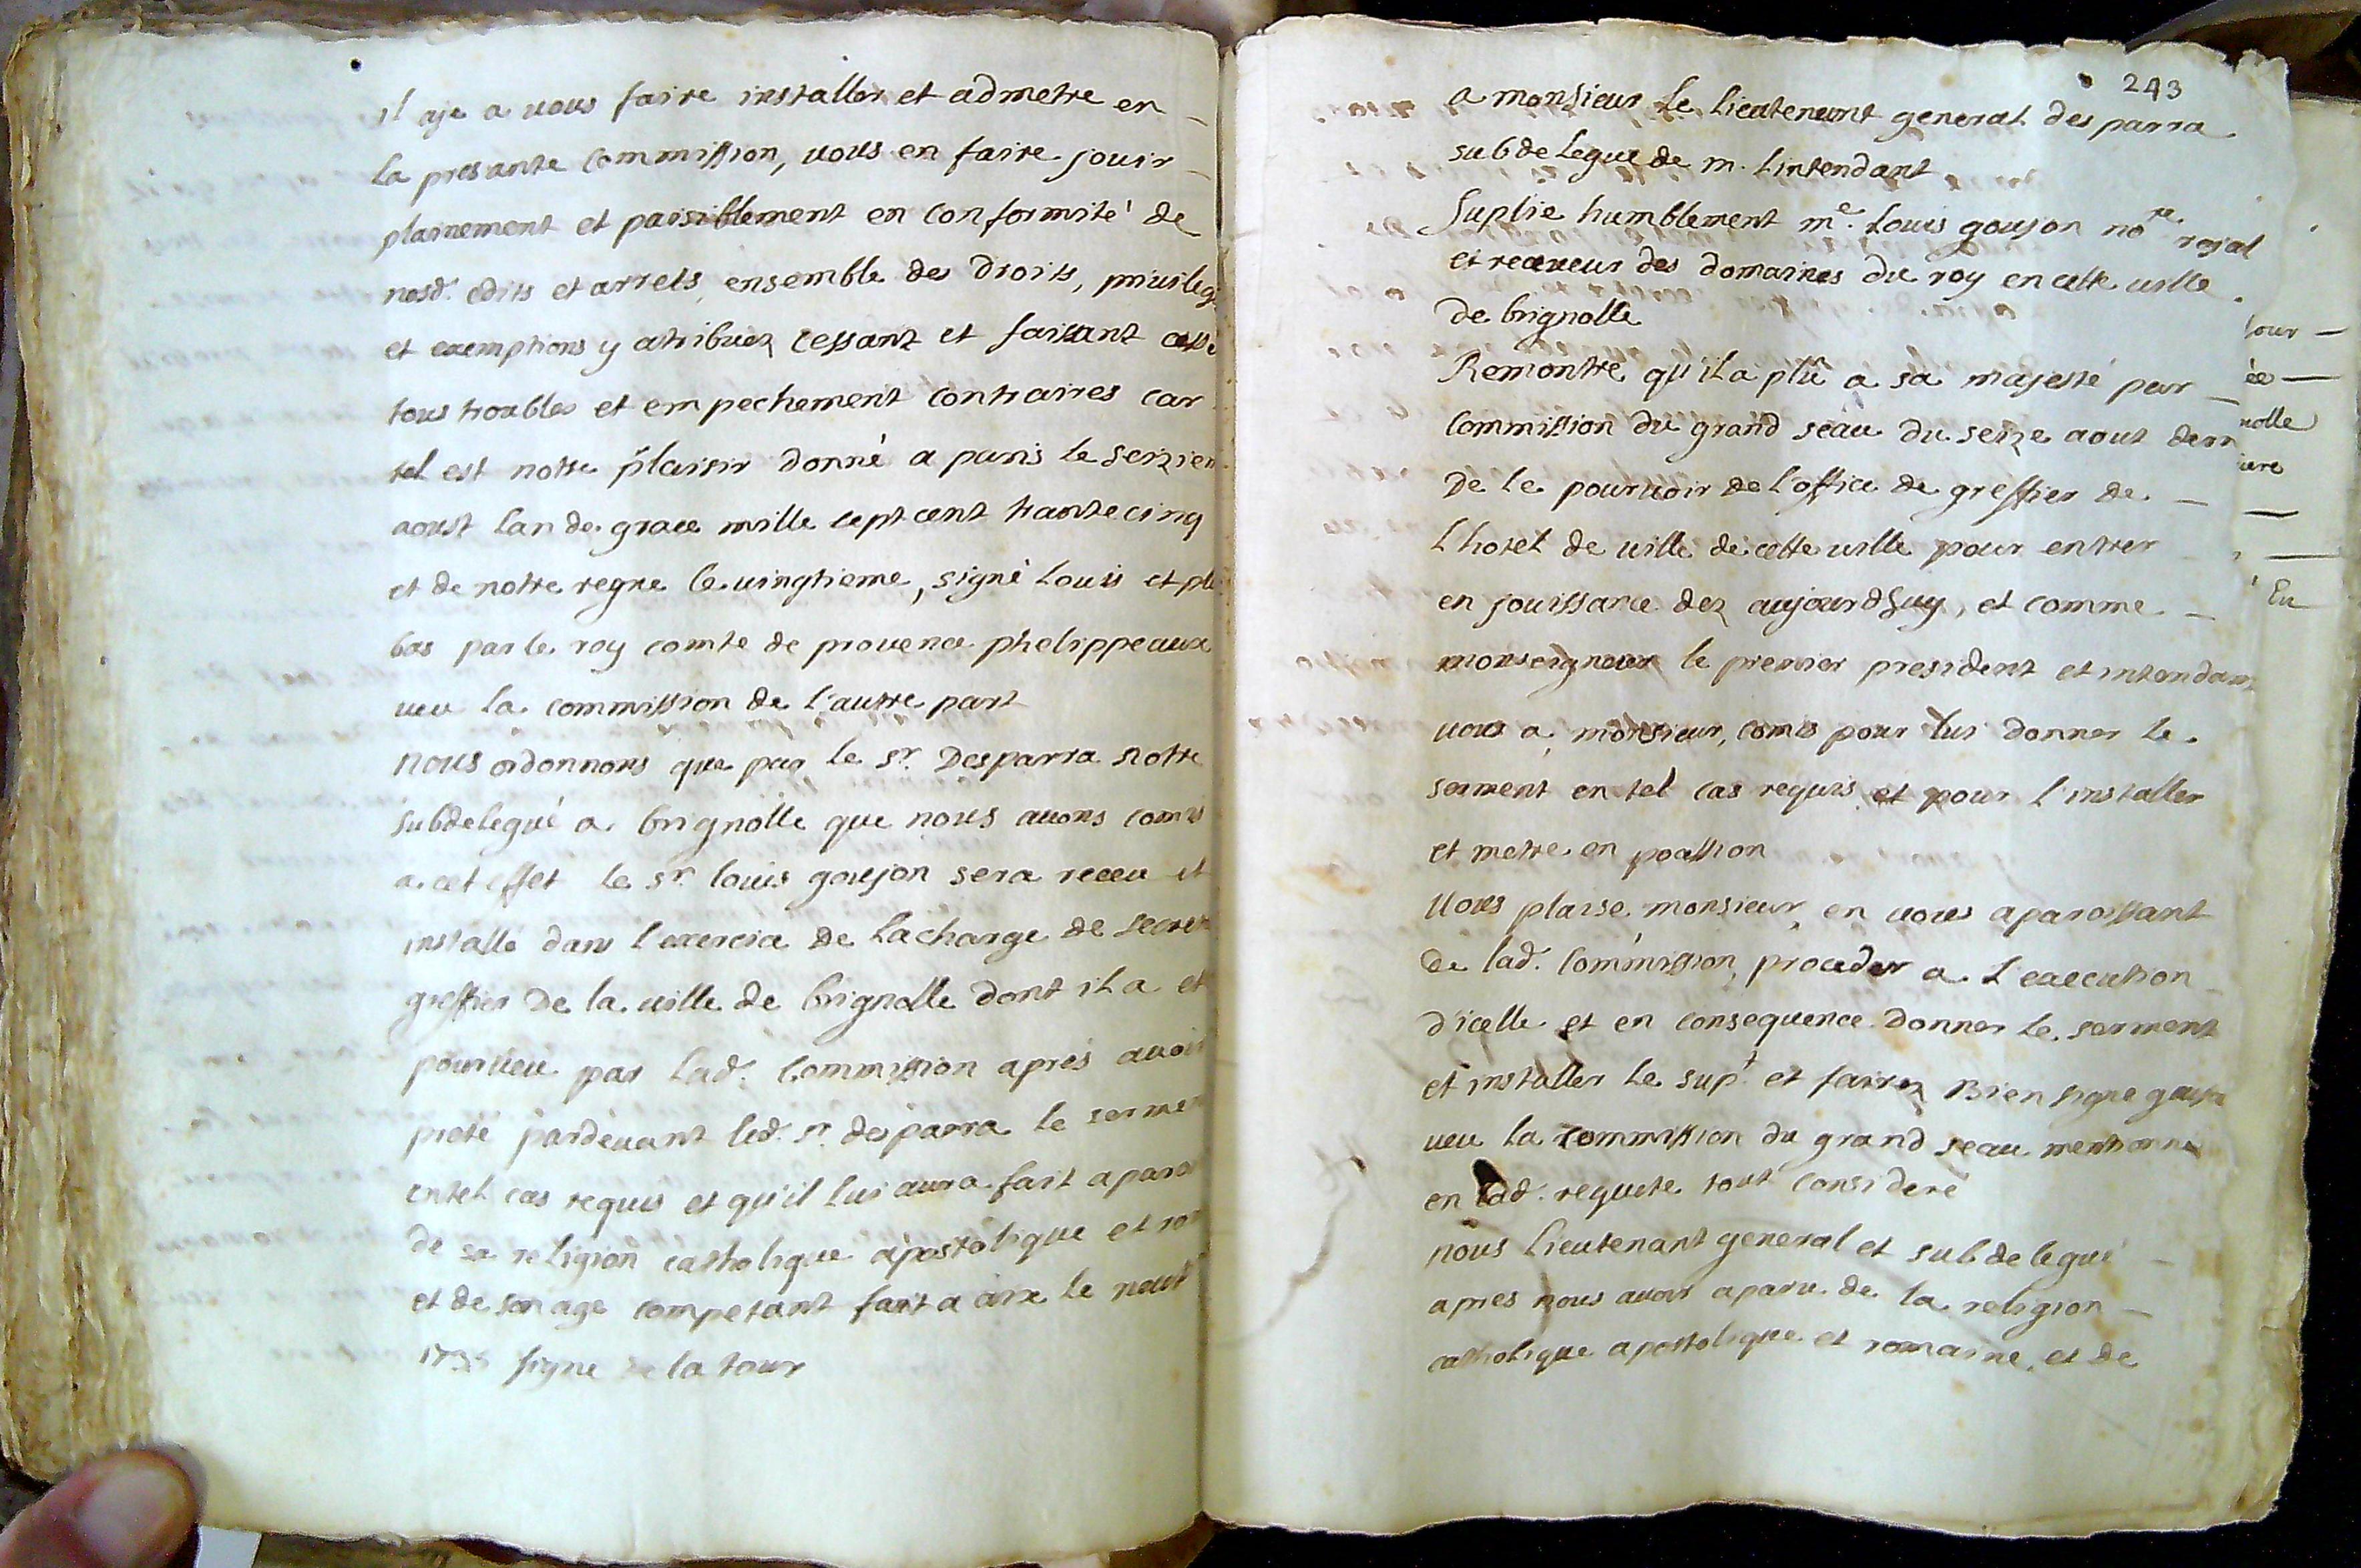 il aje a vous faire installer et admetre en
la presante commission, vous en faire jouir
plainement et paisiblement en conformité de
nosd. edits et arrets, ensemble des droits, privileg
et exemptions y atribuez cessant et faisant cesse
tous troubles et empechement contraires car
tel est notre plaisir donné a paris le seizien
aoust lan de grace mille sept cent trante cinq
et de notre regne le vingtieme, signé Louis et plu
bas par le roy comte de provence phelippeaux
veu la commission de l'autre part
nous ordonnons que par le sr. Desparra notre
subdelegué a brignolle que nous avons comis
a cet effet le sr. louis goujon sera receu et
installé dans l'exercice de la charge de secret
greffier De la ville de brignolle dont il a et
pourveu par lad. Commission aprés avoir
preté pardevant led. sr. desparra le sermen
en tel cas requis et qu'il lui aura fait aparoi
de sa religion catholique apostolique et rom
et de son age competant fait a aix le neuf
1735 signe de la tour
243
a monsieur Le Lieutenent general des parra
subdelegue de m. Lintendant
Suplie humblement me. Louis goujon nore. rojal
et receveur des domaines du roy en cette ville
de brignolle
Remontre qu'il a plû a sa majesté par
Commission du grand seau du seize aout dern
De le pourvoir de l'office de greffier de
L'hotel de ville de cette ville pour entrer
en jouissance dez aujourdhuy, et comme
monseigneur le premier president et intendant
vous a, monsieur, comis pour lui donner le
serment en tel cas requis et pour l'installer
et metre en poassion
Vous plaise monsieur, en vous aparoissant
De lad. Commission, proceder a L'execution
d'icelle et en consequence donner le serment
et installer le supt. et fairez Bien signe goujon
veu la commission du grand seau mentionné
en lad. requete tout consideré
nous Lieutenant general et subdelegué
apres nous avoir aparu de la religion
catholique apostolique et romaine, et de